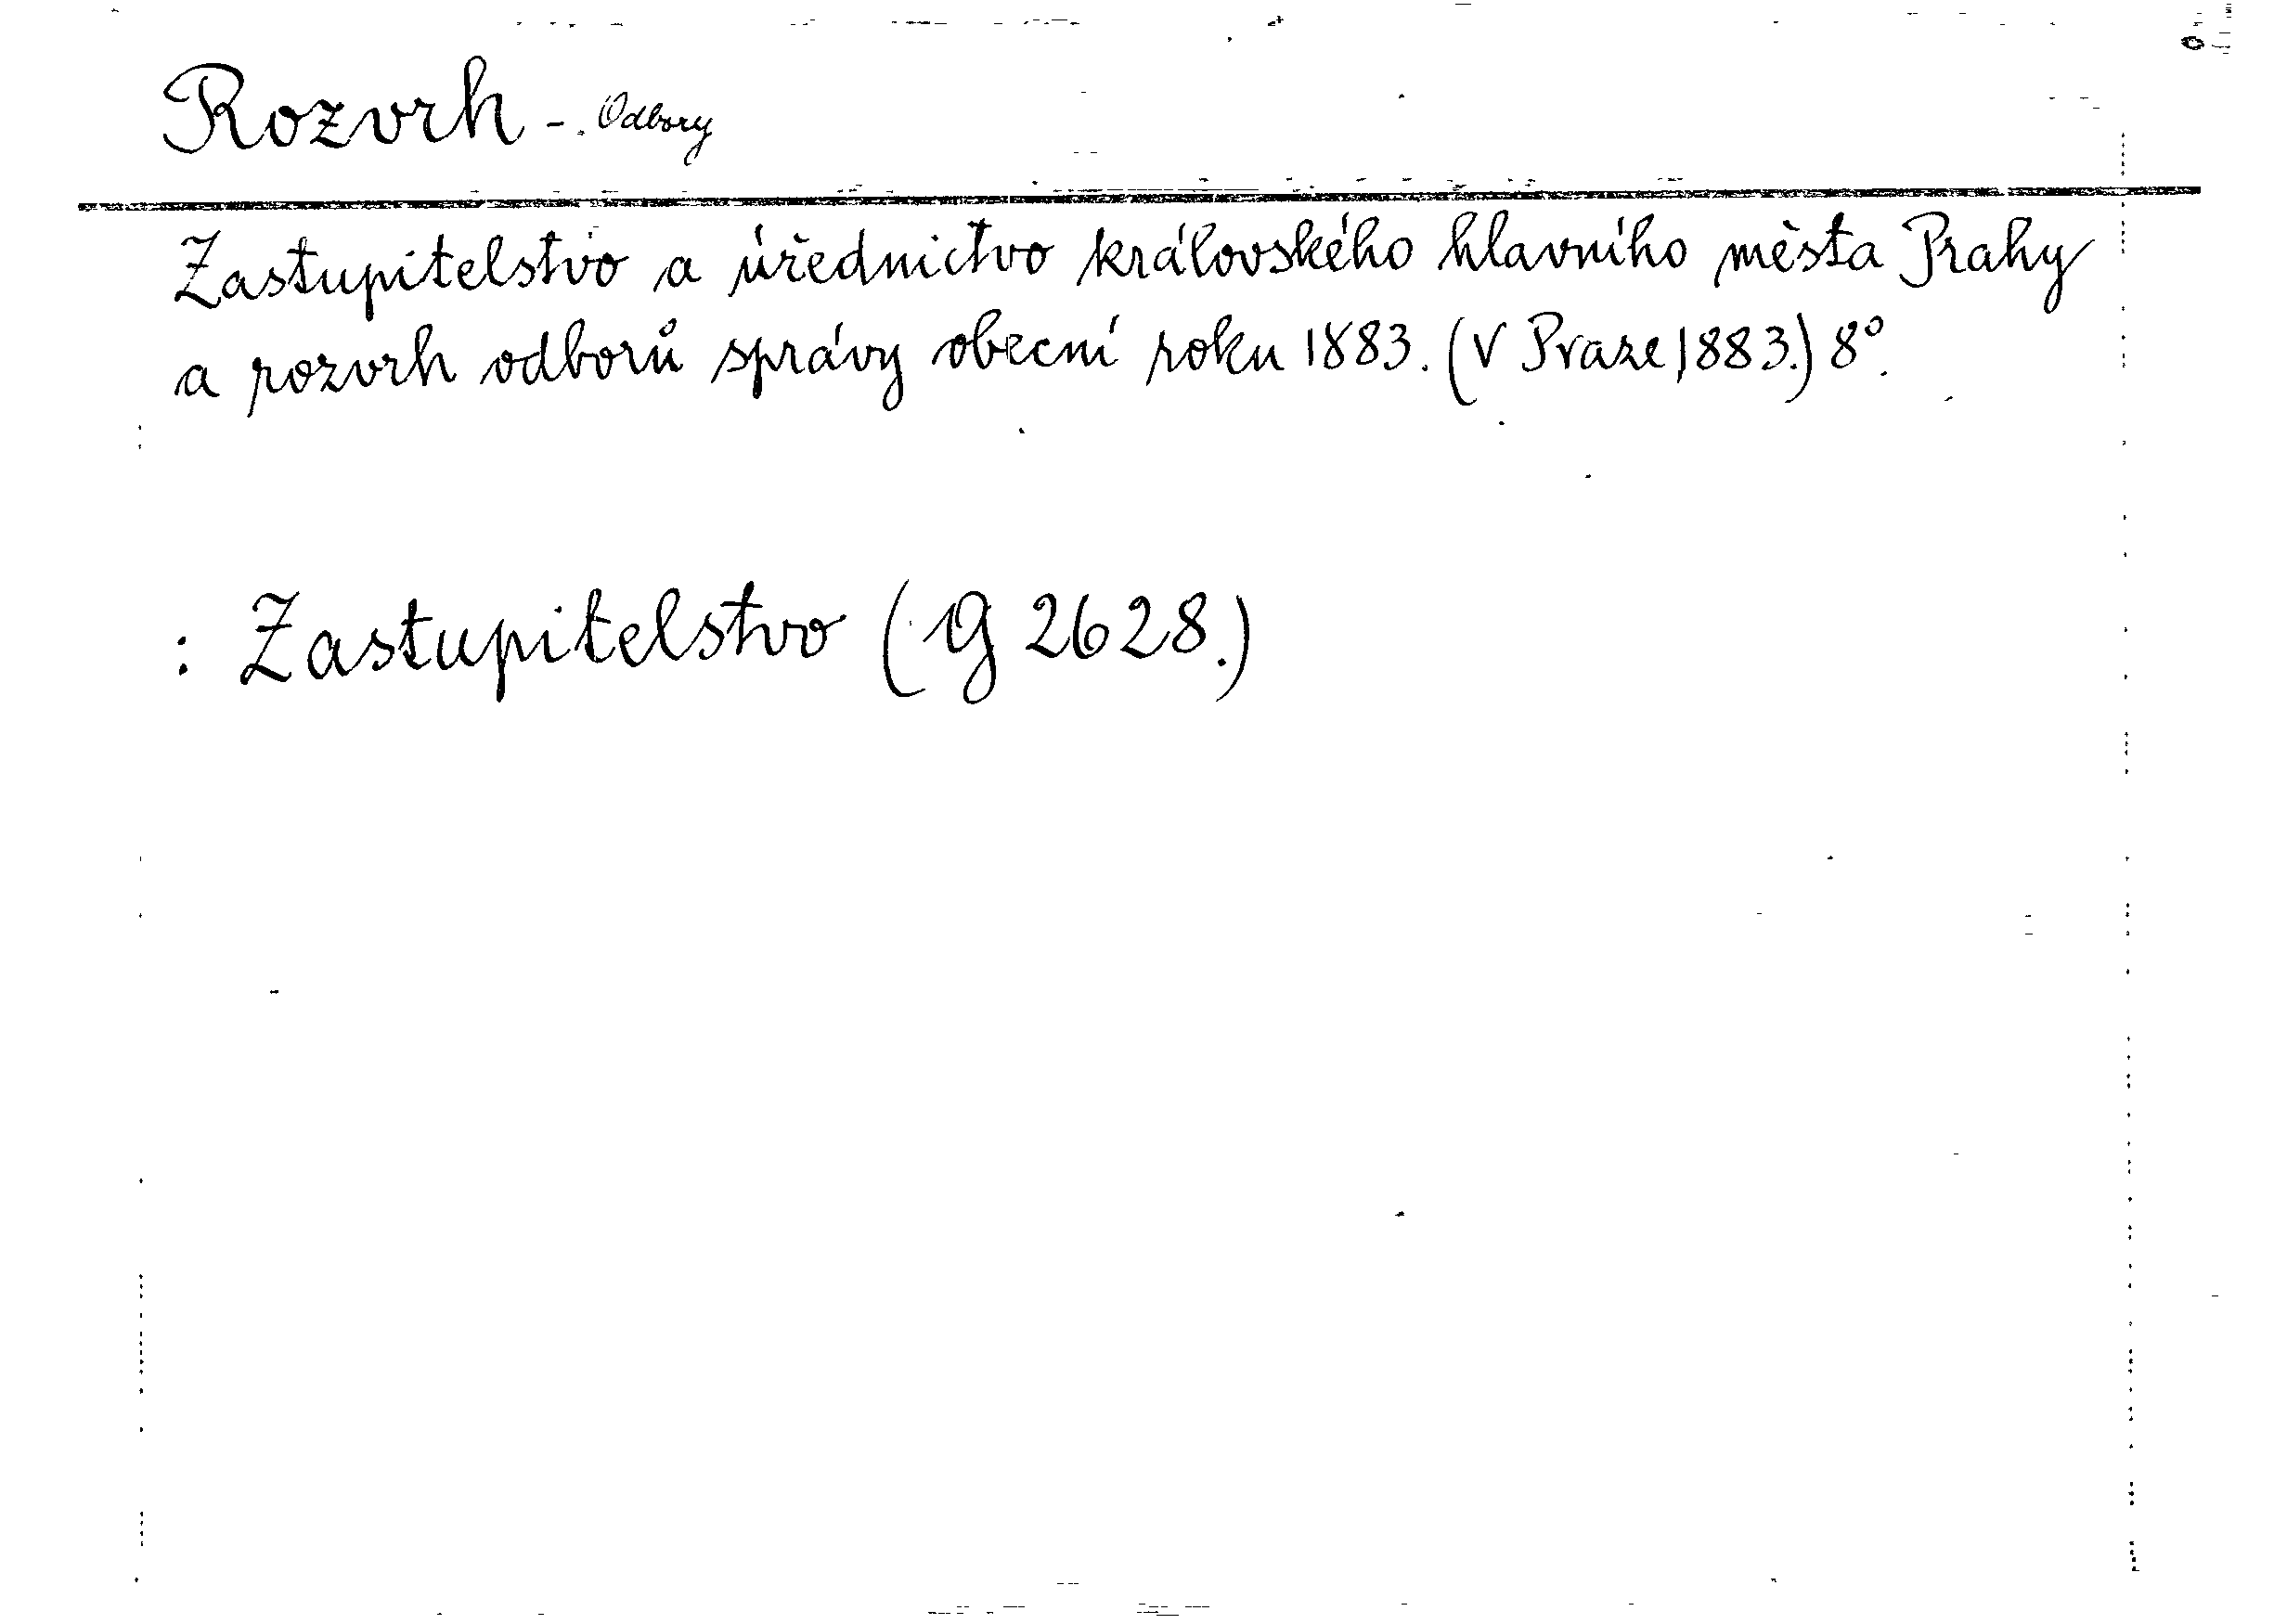 Rozvrh -. Odbory
Zastupitelstvo a úřednictvo královského hlavního města Prahy
a rozvrh odborů správy obecní roku 1883. (V Praze, 1883.) 8°.
: Zastupitelstvo (G 2628.)